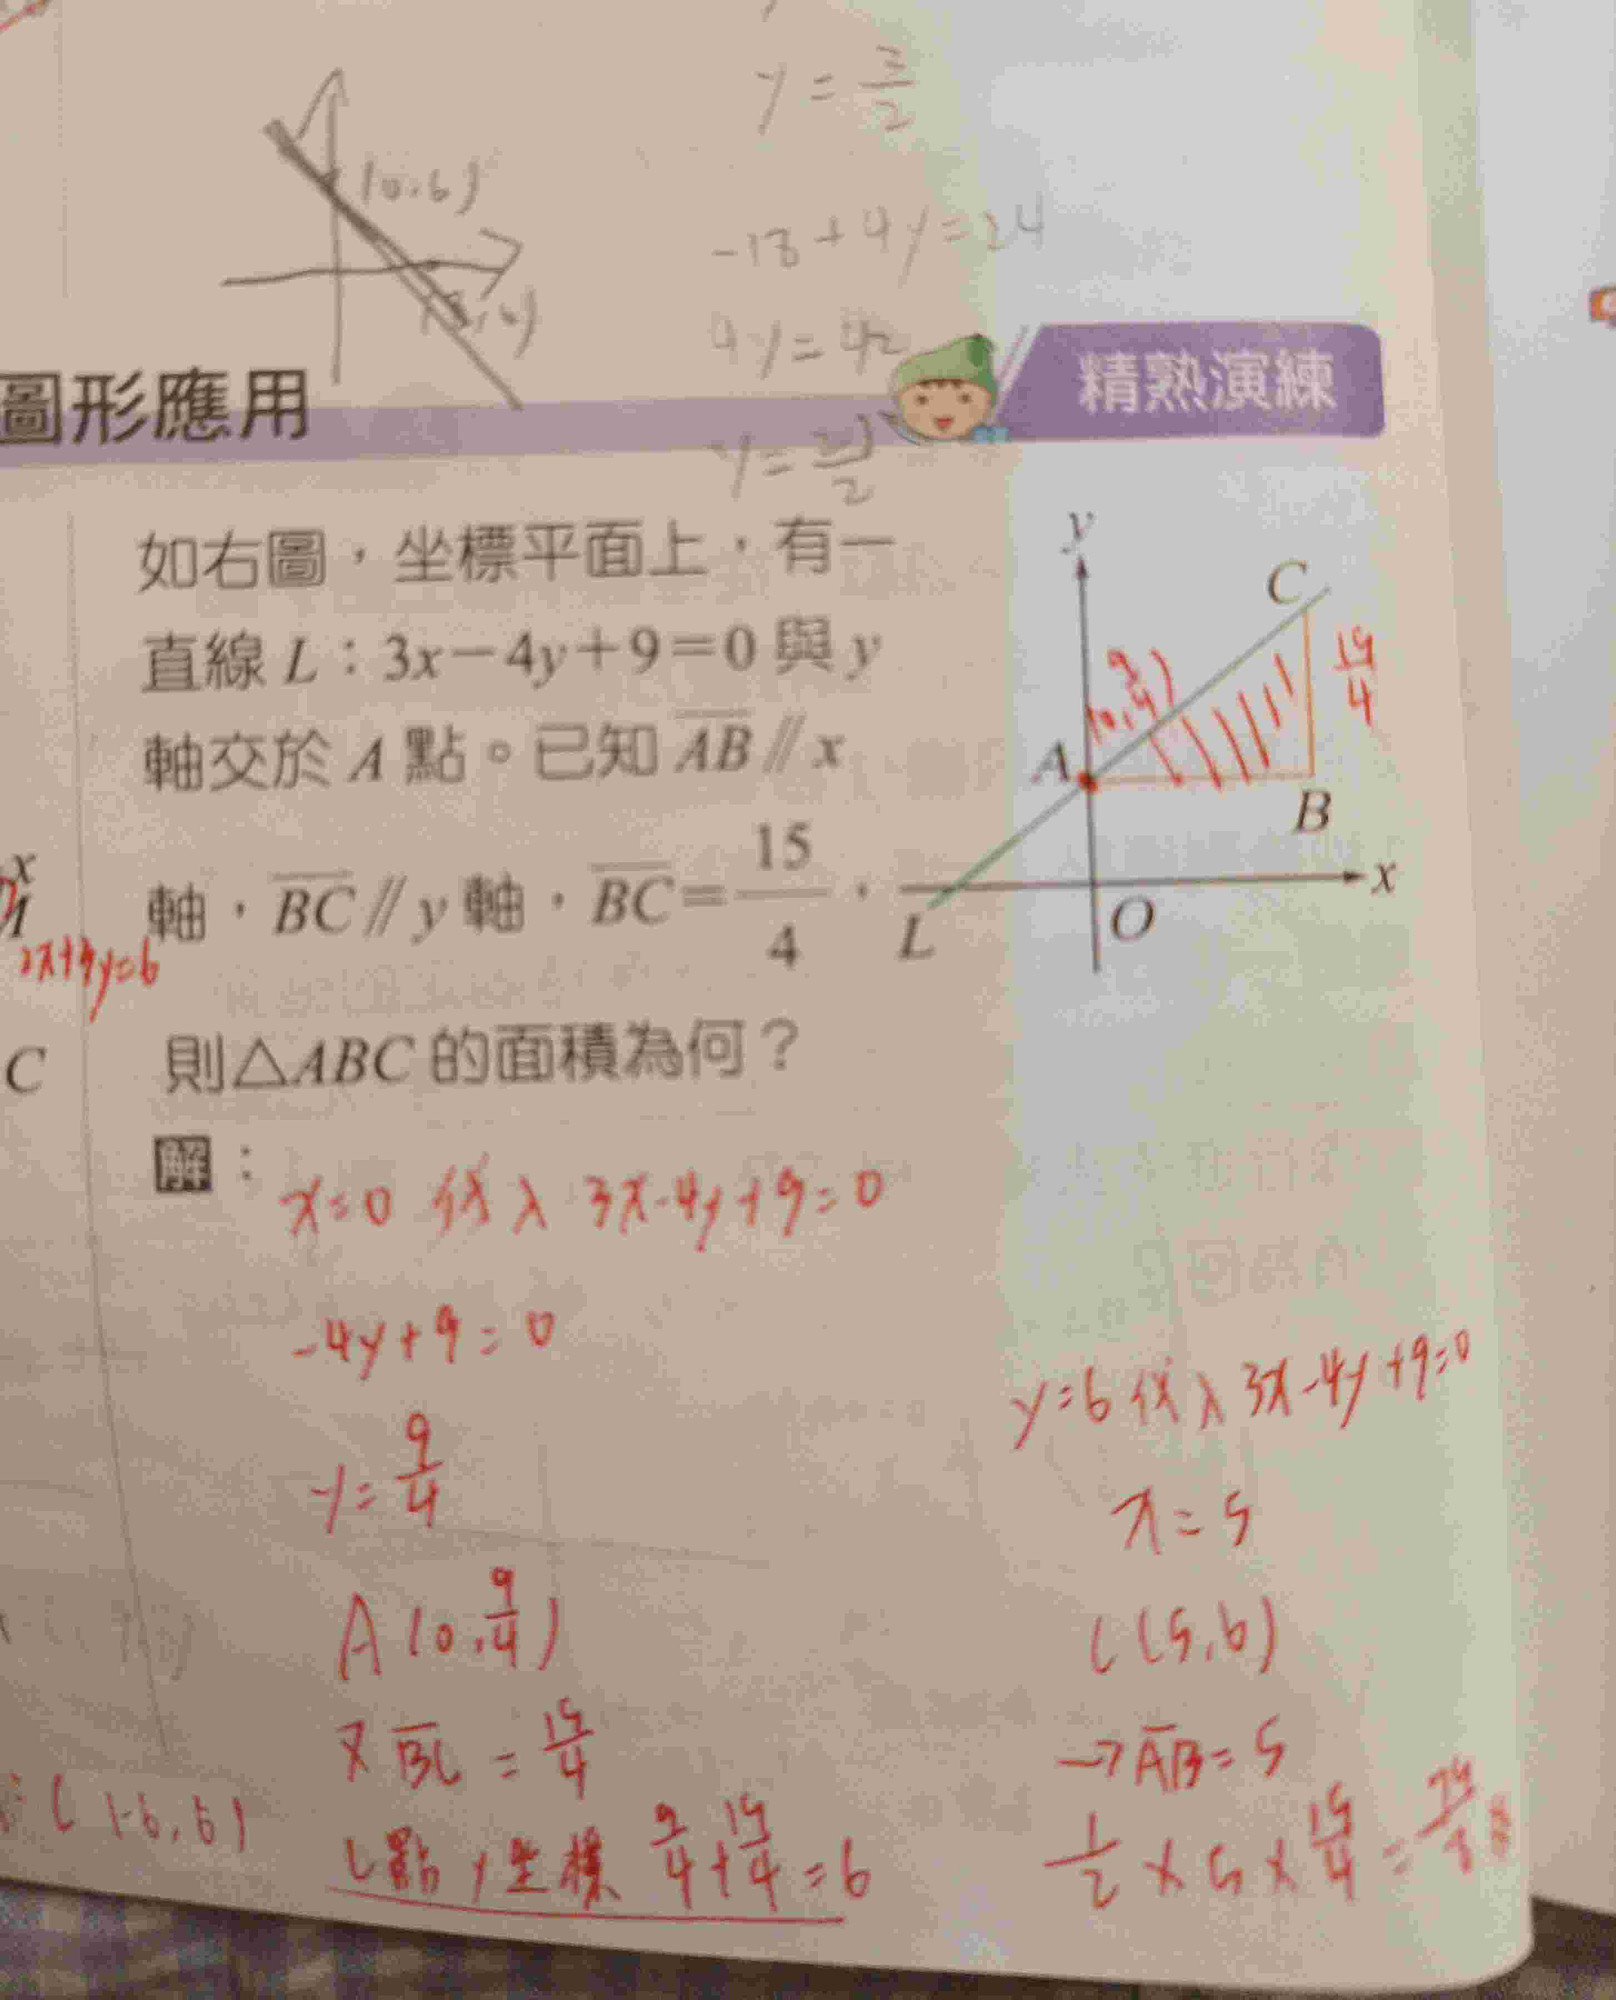 y = 3/2
(0,6)
-18+4y=24
4y=42
y=21/2
圖形應用
精熟演練
如右圖，坐標平面上，有一
直線 L：3x－4y＋9＝0 與 y
軸交於 A 點。已知 AB // x
軸，BC // y 軸，BC＝15/4，
則△ABC 的面積為何？
y
C
15/4
(0,9/4)
A
B
x
L
O
x
C
解：
x=0 代入 3x-4y+9=0
-4y+9=0
y=9/4
A(0,9/4)
又 BC = 15/4
C點y坐標 9/4+15/4=6
y=6代入3x-4y+9=0
x=5
C(5,6)
→AB=5
1/2×5×15/4=75/8
C(-6,6)